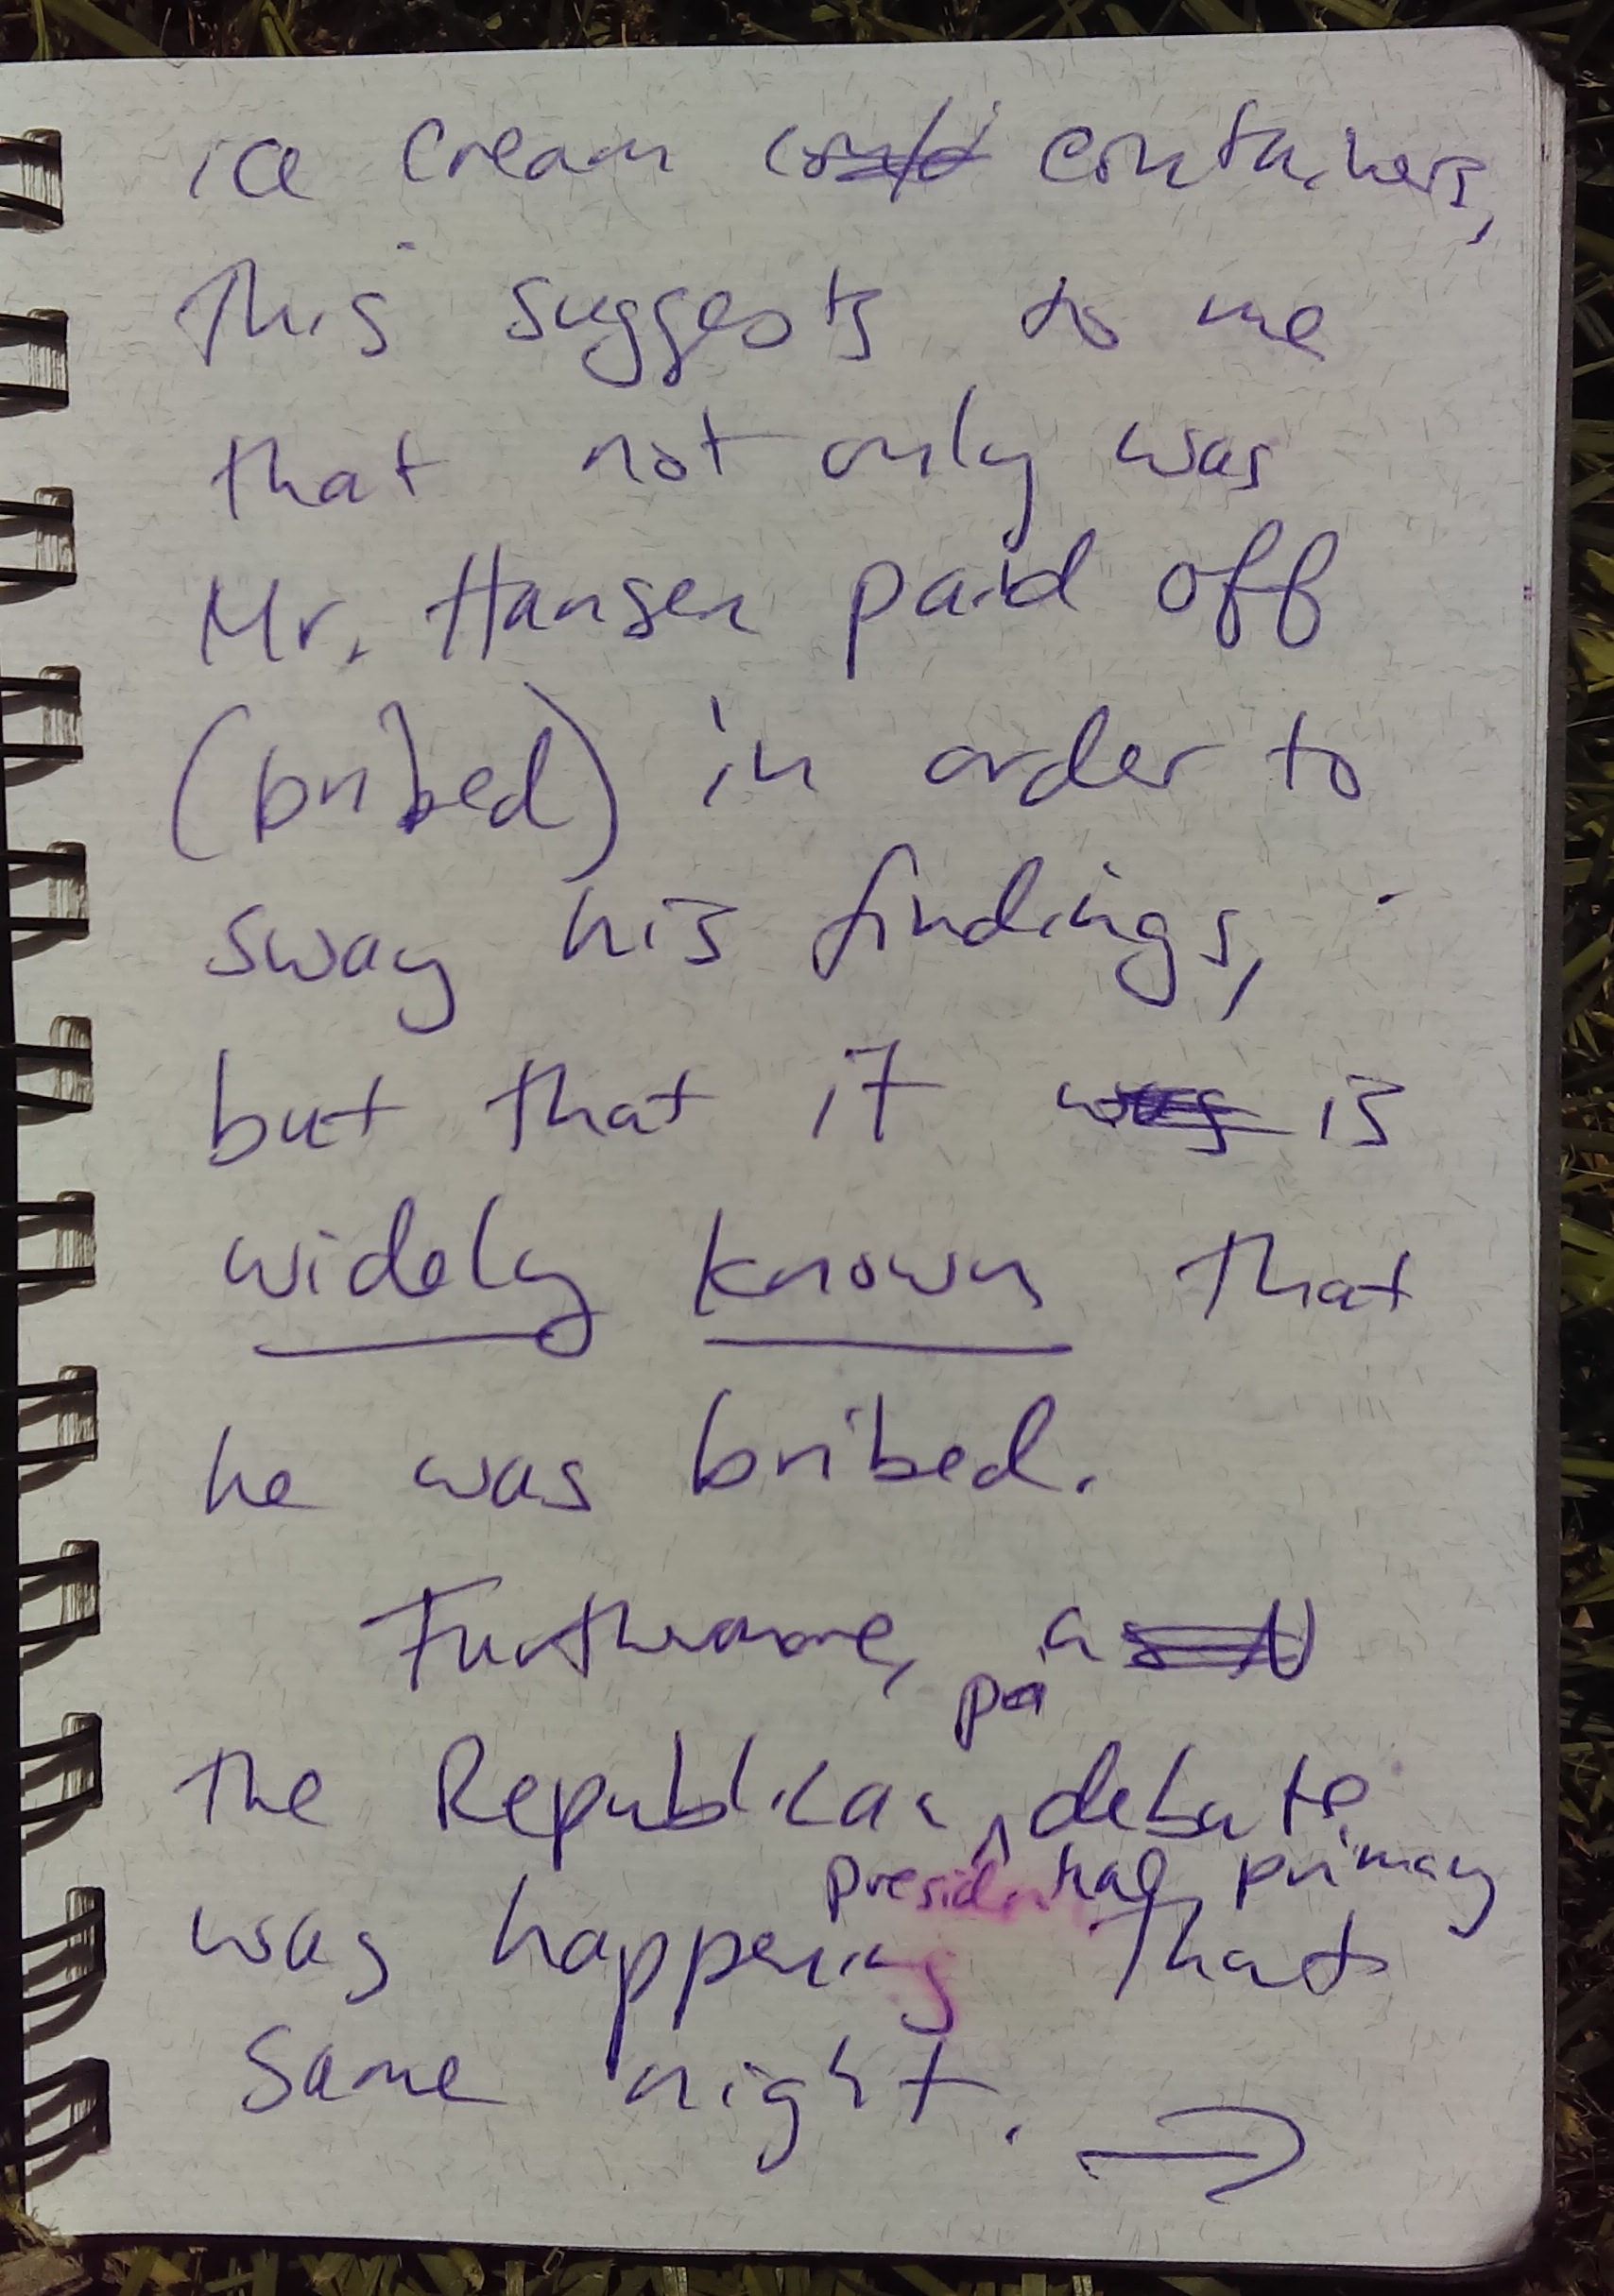 ice cream could containers,
This suggests to me
that not only was
Mr. Hansen paid off
(bribed) in order to
sway his findings,
but that it was is
widely known that
he was bribed.
Furthermore, a
pa
the Republican debate
presidential primary
was happening that
same night.